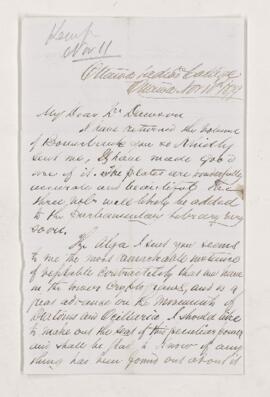 Kemp
Nov 11
Ottawa Ladies College
Ottawa Nov 11th 1879
My Dear Dr Dawson
I have returned the volume
of you so kindly
sent me, I have made good
use of it. The plates are wonderfully
accurate and beautiful. The
three vols will likely be added
to the Parliamentary Library very
soon.
The Alga I send you seems
to me the most remarkable instance
of vegetable contractility that we have
in the lower Cryptogams, and is a
great advance on the movements of
Diatoms and Oscillaria. I should like
to make out the seat of this peculiar power
and shall be glad to know if any
thing has been found out about it